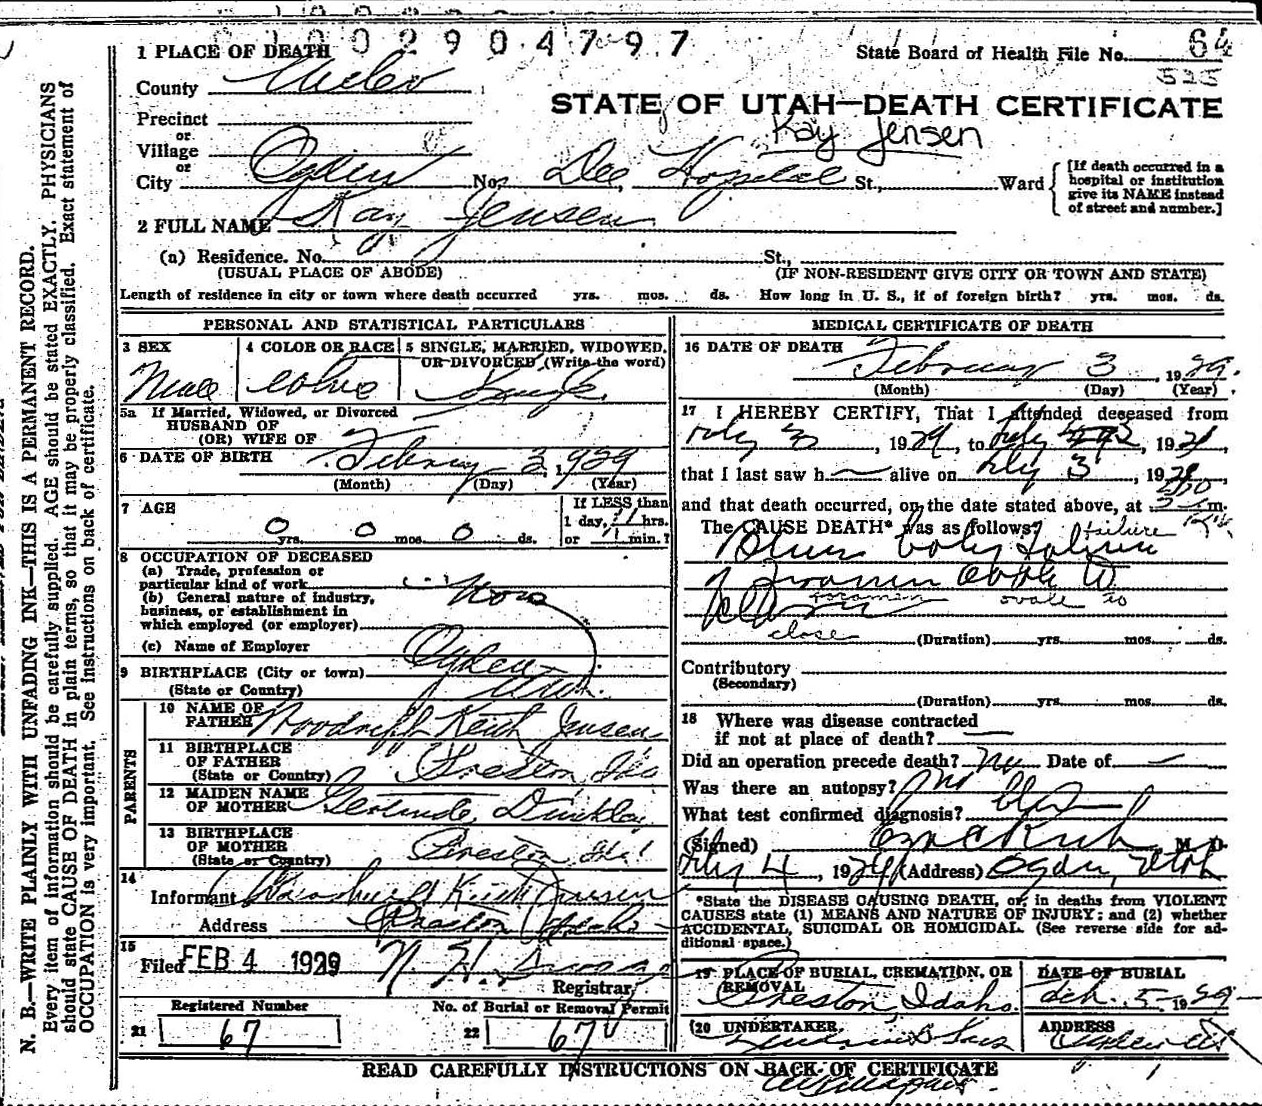 0 0 2 9 0 4 7 9 7
1 PLACE OF DEATH
State Board of Health File No. 64
525
County Weber
STATE OF UTAH—DEATH CERTIFICATE
Precinct
Kay Jensen
or
Village
or
City Ogden No. Dee Hospital St., Ward
[If death occurred in a
hospital or institution
give its NAME instead
of street and number.]
2 FULL NAME Kay Jensen
(a) Residence. No. St.,
(USUAL PLACE OF ABODE) (IF NON-RESIDENT GIVE CITY OR TOWN AND STATE)
Length of residence in city or town where death occurred yrs. mos. ds. How long in U. S., if of foreign birth? yrs. mos. ds.
N. B.—WRITE PLAINLY WITH UNFADING INK—THIS IS A PERMANENT RECORD.
Every item of information should be carefully supplied. AGE should be stated EXACTLY. PHYSICIANS
should state CAUSE OF DEATH in plain terms, so that it may be properly classified. Exact statement of
OCCUPATION is very important. See instructions on back of certificate.
PERSONAL AND STATISTICAL PARTICULARS
3 SEX
Male
4 COLOR OR RACE
5 SINGLE, MARRIED, WIDOWED,
OR DIVORCED (Write the word)
Single
5a If Married, Widowed, or Divorced
HUSBAND OF
(OR) WIFE OF
6 DATE OF BIRTH February 3, 1929
(Month) (Day) (Year)
7 AGE
0 yrs. 0 mos. 0 ds.
If LESS than
1 day, hrs.
or min.?
8 OCCUPATION OF DECEASED
(a) Trade, profession or
particular kind of work
(b) General nature of industry,
business, or establishment in
which employed (or employer)
None
(c) Name of Employer
9 BIRTHPLACE (City or town) Ogden
(State or Country) Utah
PARENTS
10 NAME OF
FATHER Woodruff Keith Jensen
11 BIRTHPLACE
OF FATHER
(State or Country) Preston, Ida
12 MAIDEN NAME
OF MOTHER Gertrude Dunkley
13 BIRTHPLACE
OF MOTHER
(State or Country) Preston Ida
14
Informant Keith Jensen
Address Preston Idaho
15
Filed FEB 4 1929 N. H.
Registrar
Registered Number
21 67
No. of Burial or Removal Permit
22 67
MEDICAL CERTIFICATE OF DEATH
16 DATE OF DEATH
February 3, 1929.
(Month) (Day) (Year)
17 I HEREBY CERTIFY, That I attended deceased from
1929, to 192
that I last saw h alive on 3, 192
and that death occurred, on the date stated above, at m.
The CAUSE DEATH* was as follows?
failure
Blue baby
foramen ovale to
close
(Duration) yrs. mos. ds.
Contributory
(Secondary)
(Duration) yrs. mos. ds.
18 Where was disease contracted
if not at place of death?
Did an operation precede death? No Date of
Was there an autopsy? No
What test confirmed diagnosis?
(Signed) M D
4, 1929 (Address) Ogden, Utah
*State the DISEASE CAUSING DEATH, or, in deaths from VIOLENT
CAUSES state (1) MEANS AND NATURE OF INJURY; and (2) whether
ACCIDENTAL, SUICIDAL OR HOMICIDAL. (See reverse side for ad-
ditional space.)
19 PLACE OF BURIAL, CREMATION, OR
REMOVAL
Preston, Idaho.
DATE OF BURIAL
5 1929
20 UNDERTAKER
& Sons
ADDRESS
Ogden Ut
READ CAREFULLY INSTRUCTIONS ON BACK OF CERTIFICATE